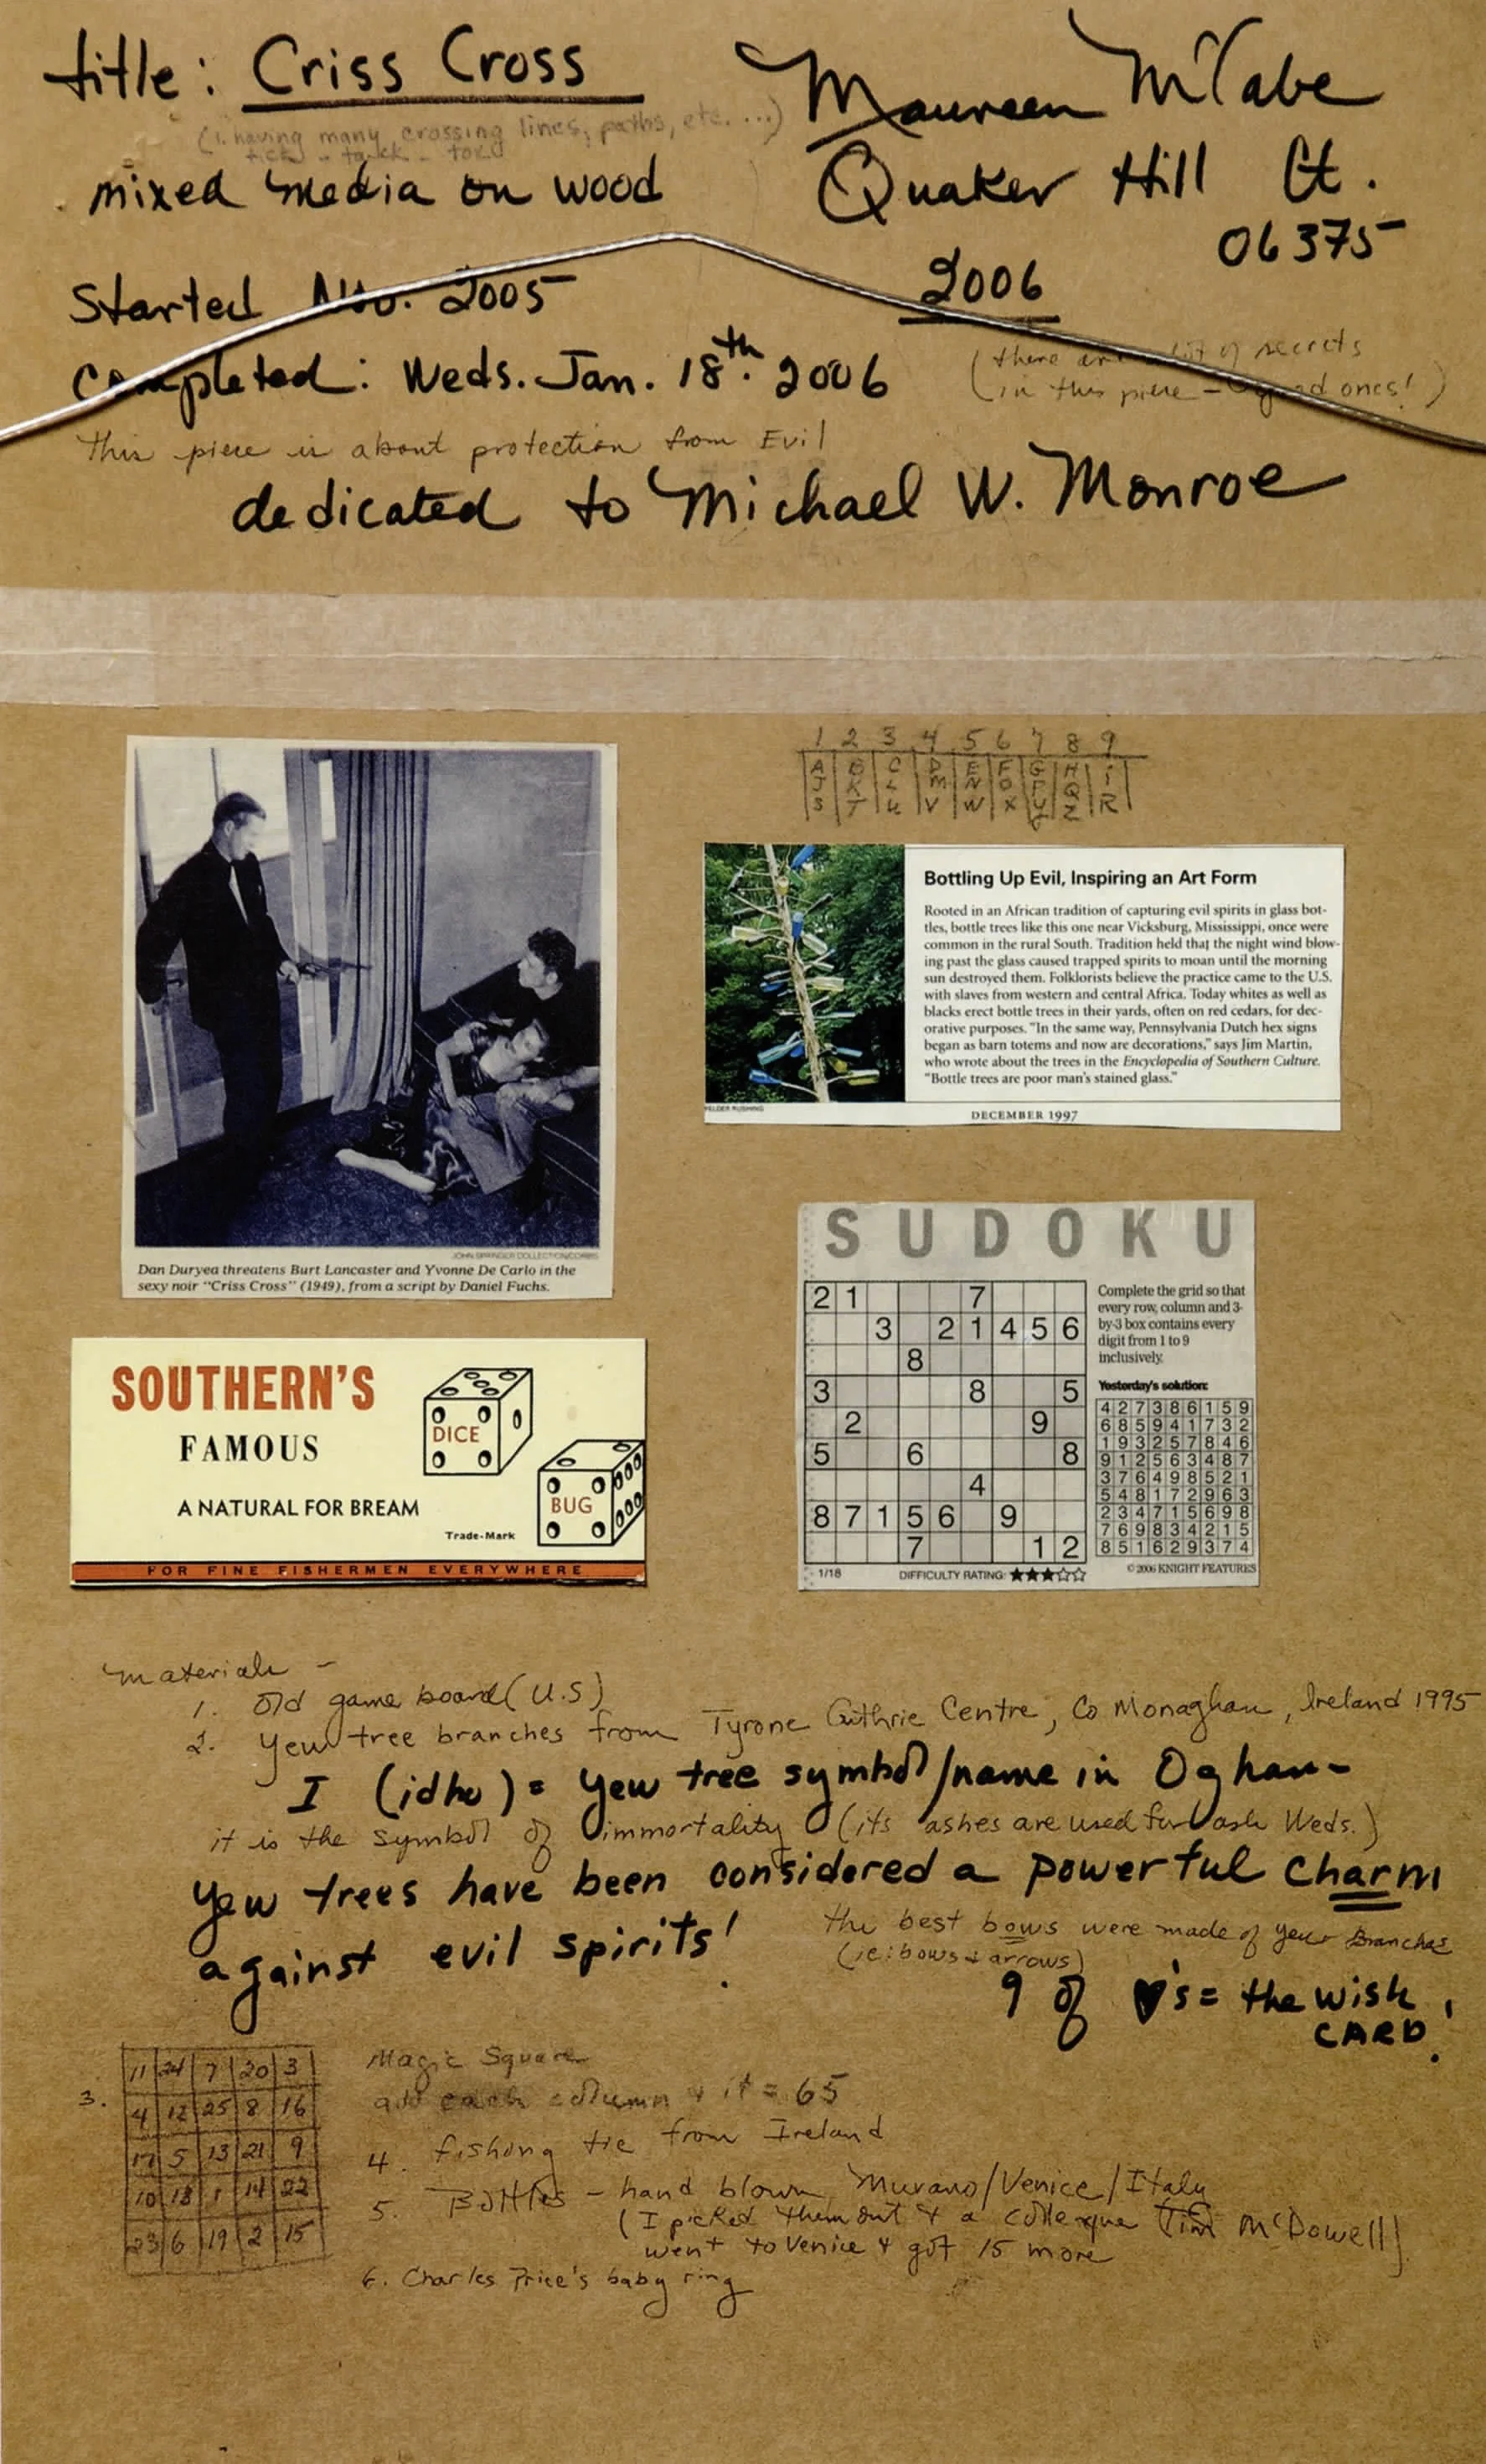 title: Criss Cross
(1. having many crossing lines, paths, etc. ...)
tick - tack - toe
mixed media on wood
Maureen McCabe
Quaker Hill Ct.
06375
2006
Started Nov. 2005
Completed: Weds. Jan. 18th. 2006
(there are a lot of secrets
(in this piece - good ones!)
This piece is about protection from Evil
dedicated to Michael W. Monroe
1 2 3 4 5 6 7 8 9
A B C D E F G H i
J K L M N O P Q R
S T U V W X Y Z
JOHN SPRINGER COLLECTION/CORBIS
Dan Duryea threatens Burt Lancaster and Yvonne De Carlo in the
sexy noir "Criss Cross" (1949), from a script by Daniel Fuchs.
Bottling Up Evil, Inspiring an Art Form
Rooted in an African tradition of capturing evil spirits in glass bot-
tles, bottle trees like this one near Vicksburg, Mississippi, once were
common in the rural South. Tradition held that the night wind blow-
ing past the glass caused trapped spirits to moan until the morning
sun destroyed them. Folklorists believe the practice came to the U.S.
with slaves from western and central Africa. Today whites as well as
blacks erect bottle trees in their yards, often on red cedars, for dec-
orative purposes. "In the same way, Pennsylvania Dutch hex signs
began as barn totems and now are decorations," says Jim Martin,
who wrote about the trees in the Encyclopedia of Southern Culture.
"Bottle trees are poor man's stained glass."
FELDER RUSHING
DECEMBER 1997
SOUTHERN'S
FAMOUS
A NATURAL FOR BREAM
DICE
BUG
Trade-Mark
FOR FINE FISHERMEN EVERYWHERE
SUDOKU
2 1 7
3 2 1 4 5 6
8
3 8 5
2 9
5 6 8
4
8 7 1 5 6 9
7 1 2
1/18 DIFFICULTY RATING: ★★★☆☆
Complete the grid so that
every row, column and 3-
by-3 box contains every
digit from 1 to 9
inclusively.
Yesterday's solution:
4 2 7 3 8 6 1 5 9
6 8 5 9 4 1 7 3 2
1 9 3 2 5 7 8 4 6
9 1 2 5 6 3 4 8 7
3 7 6 4 9 8 5 2 1
5 4 8 1 7 2 9 6 3
2 3 4 7 1 5 6 9 8
7 6 9 8 3 4 2 1 5
8 5 1 6 2 9 3 7 4
© 2006 KNIGHT FEATURES
Materials -
1. Old game board (U.S)
2. Yew tree branches from Tyrone Guthrie Centre, Co Monaghan, Ireland 1995
I (idho) = Yew tree symbol/name in Ogham-
it is the symbol of immortality (its ashes are used for ash Weds.)
Yew trees have been considered a powerful charm
against evil spirits!
the best bows were made of yew Branches
(ie: bows + arrows)
9 of ♥'s = the wish
CARD!
3.
11 24 7 20 3
4 12 25 8 16
17 5 13 21 9
10 18 1 14 22
23 6 19 2 15
Magic Square
add each column & it = 65
4. fishing tie from Ireland
5. Bottles - hand blown Murano/Venice/Italy
(I picked them out & a colleague Tim McDowell)
went to Venice & got 15 more
6. Charles Price's baby ring